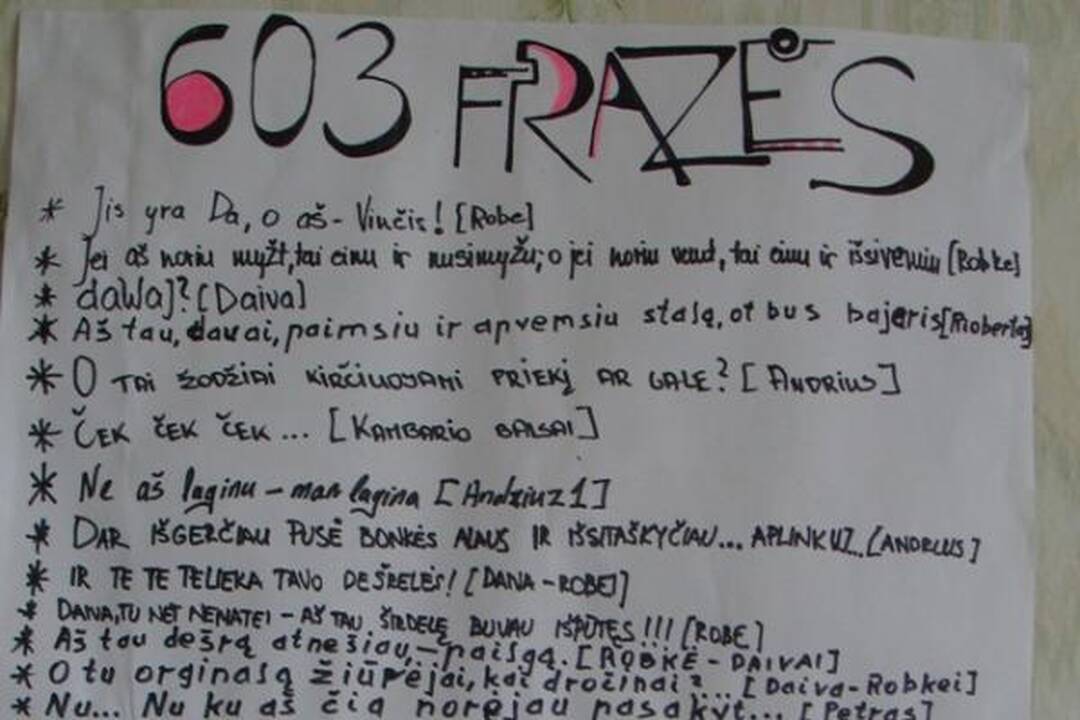 603 FRAZĖS
* Jis yra Da, o aš - Vinčis! [Robe]
* Jei aš noriu myžt, tai einu ir nusimyžu; o jei noriu vemt, tai einu ir išsivemiu [Robke]
* dawaj? [Daiva]
* Aš tau, davai, paimsiu ir apvemsiu stalą, ot bus bajeris [Rioberta]
* O TAI ŽODŽIAI KIRČIUOJAMI PRIEKĮ AR GALE? [ANDRIUS]
* ČEK ČEK ČEK... [KAMBARIO BALSAI]
* Ne aš laginu - man lagina [Andziuz1]
* DAR IŠGERČIAU PUSĖ BONKĖS ALAUS IR IŠSITAŠKYČIAU... APLINKUI... [ANDRIUS]
* IR TE TE TELIEKA TAVO DEŠRELĖS! [DANA - ROBEI]
* DANA, TU NET NENATEI - AŠ TAU ŠIRDELĘ BUVAU IŠPŪTĘS!!! [ROBE]
* Aš tau dešrą atnešiau, - paisgą. [ROBKĖ - DAIVAI]
* O tu orginasą žiūrėjai, kai dročinai?... [Daiva-Robkei]
* Nu... Nu ku aš čia norėjau pasakyt... [Petras]